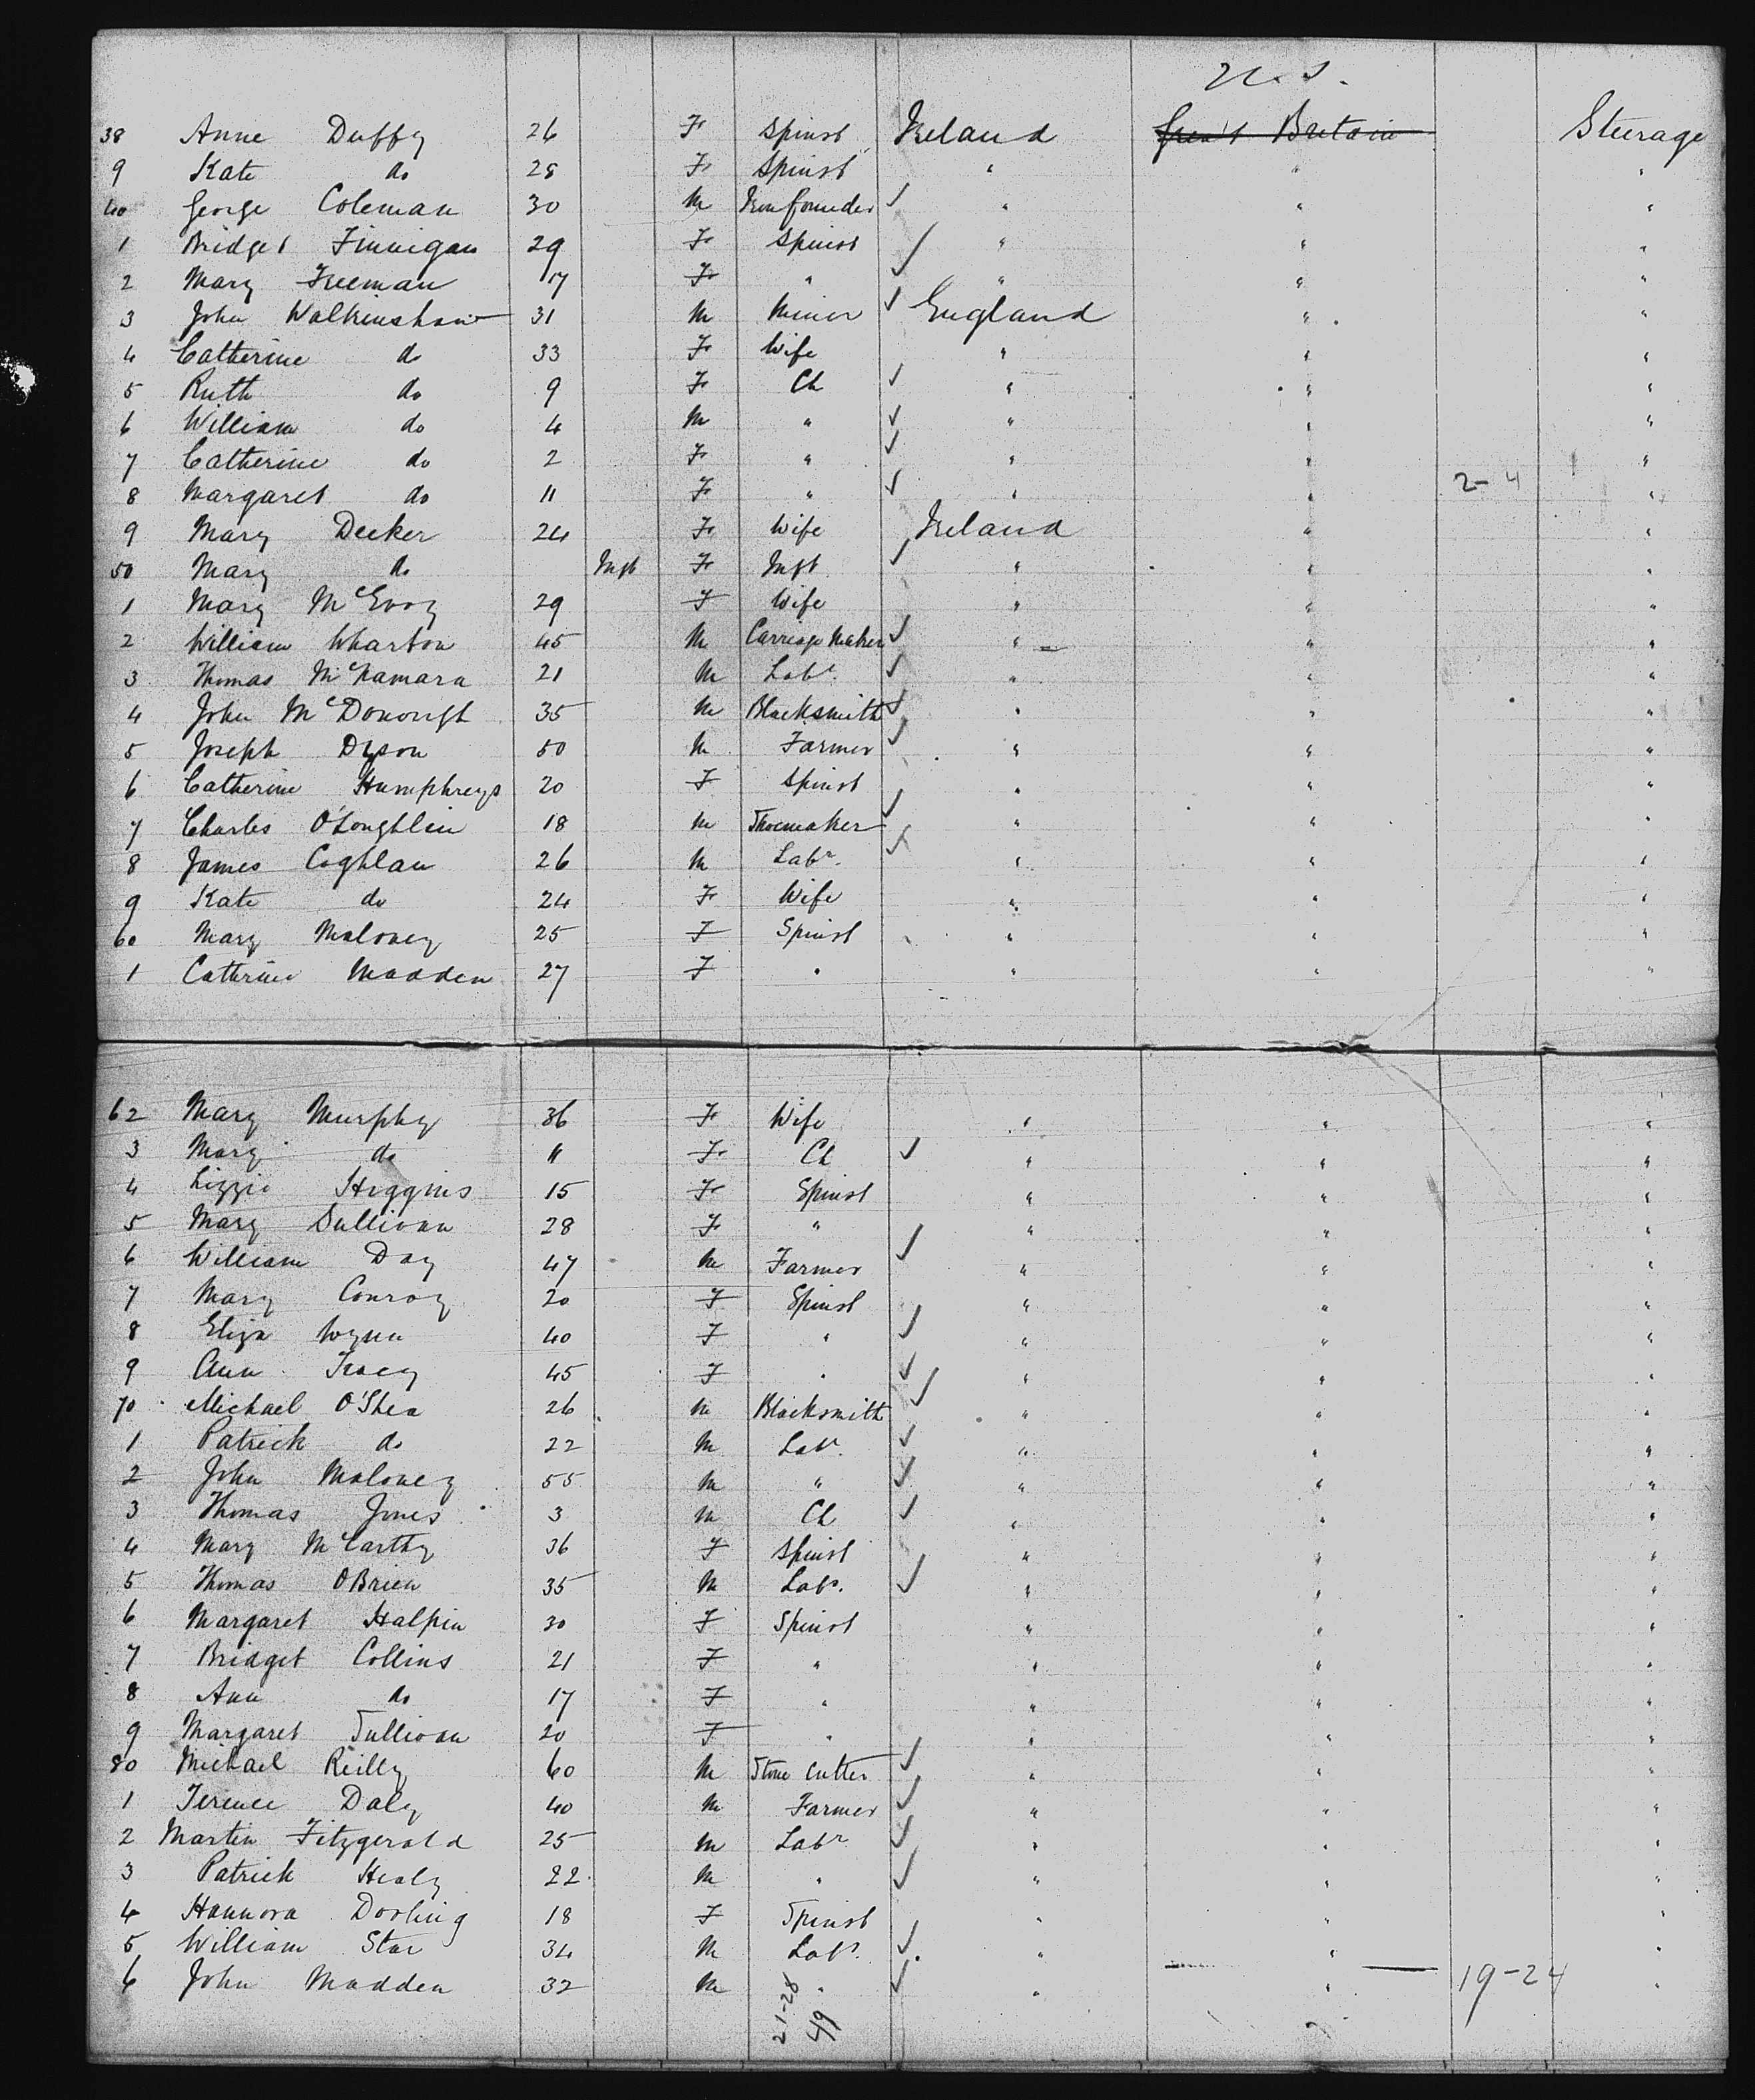 U.S.
38 Anne Duffy 26 F Spinst Ireland Great Britain Steerage
9 Kate do 28 F Spinst " " "
40 George Coleman 30 M Iron founder ✓ " " "
1 Bridget Finnigan 29 F Spinst ✓ " " "
2 Mary Freeman 17 F " " " "
3 John Walkinshaw 31 M Miner ✓ England " "
4 Catherine do 33 F Wife " " "
5 Ruth do 9 F Ch ✓ " " "
6 William do 4 M " ✓ " " "
7 Catherine do 2 F " ✓ " " "
8 Margaret do 11 F " ✓ " " 2-4 "
9 Mary Decker 24 F Wife Ireland " "
50 Mary do Inft F Inft ✓ " " "
1 Mary McEvoy 29 F Wife " " "
2 William Wharton 45 M Carriage Maker ✓ " " "
3 Thomas McNamara 21 M Labr. ✓ " " "
4 John McDonough 35 M Blacksmith ✓ " " "
5 Joseph Dyson 50 M Farmer ✓ " " "
6 Catherine Humphreys 20 F Spinst " " "
7 Charles O'Loughlin 18 M Shoemaker ✓ " " "
8 James Coghlan 26 M Labr. ✓ " " "
9 Kate do 24 F Wife " " "
60 Mary Maloney 25 F Spinst " " "
1 Cathrine Madden 27 F " " " "
62 Mary Murphy 36 F Wife " " "
3 Mary do 11 F Ch ✓ " " "
4 Lizzie Higgins 15 F Spinst " " "
5 Mary Sullivan 28 F " " " "
6 William Day 47 M Farmer ✓ " " "
7 Mary Conroy 20 F Spinst " " "
8 Eliza Wynn 40 F " ✓ " " "
9 Ann Tracy 45 F " ✓ " " "
70 Michael O'Shea 26 M Blacksmith ✓ " " "
1 Patrick do 22 M Labr. ✓ " " "
2 John Maloney 55 M " ✓ " " "
3 Thomas Jones 3 M Ch ✓ " " "
4 Mary McCarthy 36 F Spinst " " "
5 Thomas OBrien 35 M Labr. ✓ " " "
6 Margaret Halpin 30 F Spinst " " "
7 Bridget Collins 21 F " " " "
8 Ann do 17 F " " " "
9 Margaret Sullivan 20 F " " " "
80 Michael Reilly 60 M Stone Cutter ✓ " " "
1 Terence Daly 40 M Farmer ✓ " " "
2 Martin Fitzgerald 25 M Labr ✓ " " "
3 Patrick Healy 22 M " ✓ " " "
4 Hannora Dooling 18 F Spinst " " "
5 William Star 34 M Labr. ✓ " " "
6 John Madden 32 M " ✓ " " 19-24 "
21-28
49